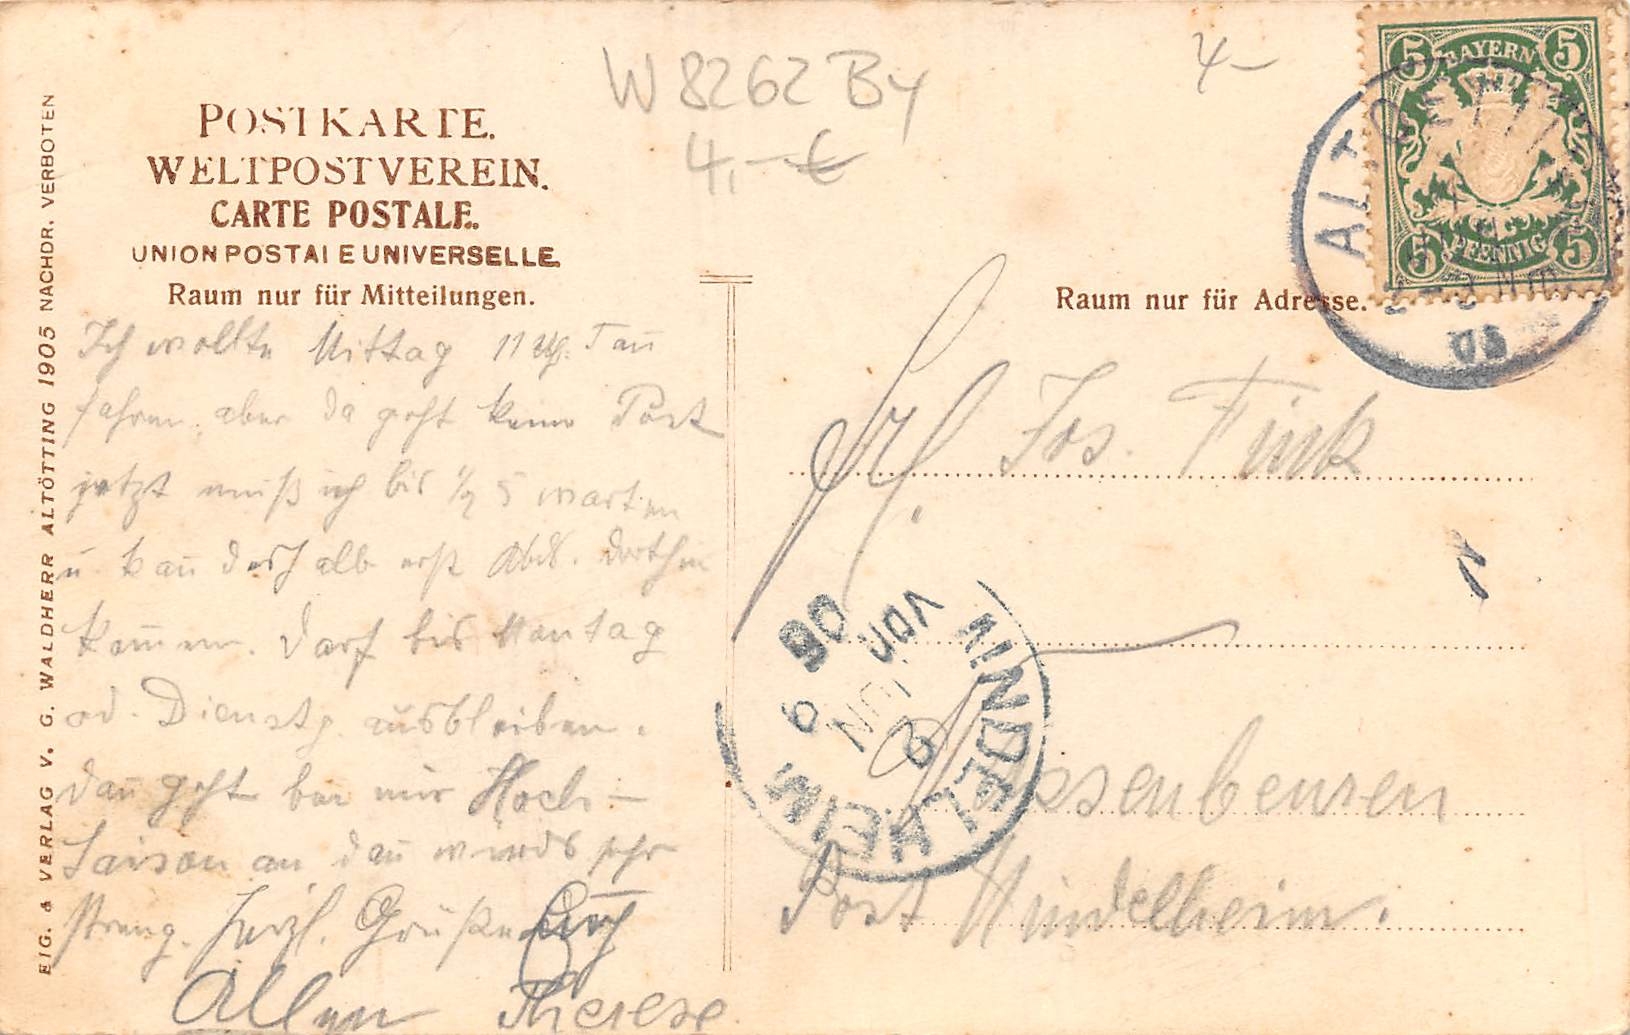 W 8262 By
4,- €
4-
POSTKARTE.
WELTPOSTVEREIN.
CARTE POSTALE.
UNION POSTALE UNIVERSELLE.
Raum nur für Mitteilungen.
Ich wollte Mittag 11 Uhr
fahren, aber da geht keine Post
jetzt muß ich bis 1/2 5 warten
u. kañ deshalb erst Abds. dorthin
kom̄en. Darf bis Montag
od. Dienstg. ausbleiben.
dañ geht bei mir Hoch-
Saison an dañ wirds sehr
streng. Herzl. Grüße Euch
Allen Therese
EIG. & VERLAG V. G. WALDHERR ALTÖTTING 1905 NACHDR. VERBOTEN
5 BAYERN 5
5 PFENNIG 5
ALTOETTING
Nm
06
Raum nur für Adresse.
Frl. Jos. Fink
MINDELHEIM
9 JUN
Vorm
06
Post Mindelheim.